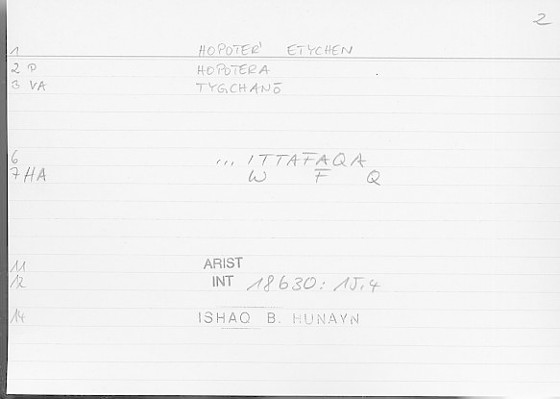 2
1 HOPOTER' ETYCHEN
2 P HOPOTERA
3 VA TYGCHANŌ
6 ... ITTAFAQA
7 HA W F Q
11 ARIST
12 INT 18630: 15,4
14 ISHAQ B. HUNAYN